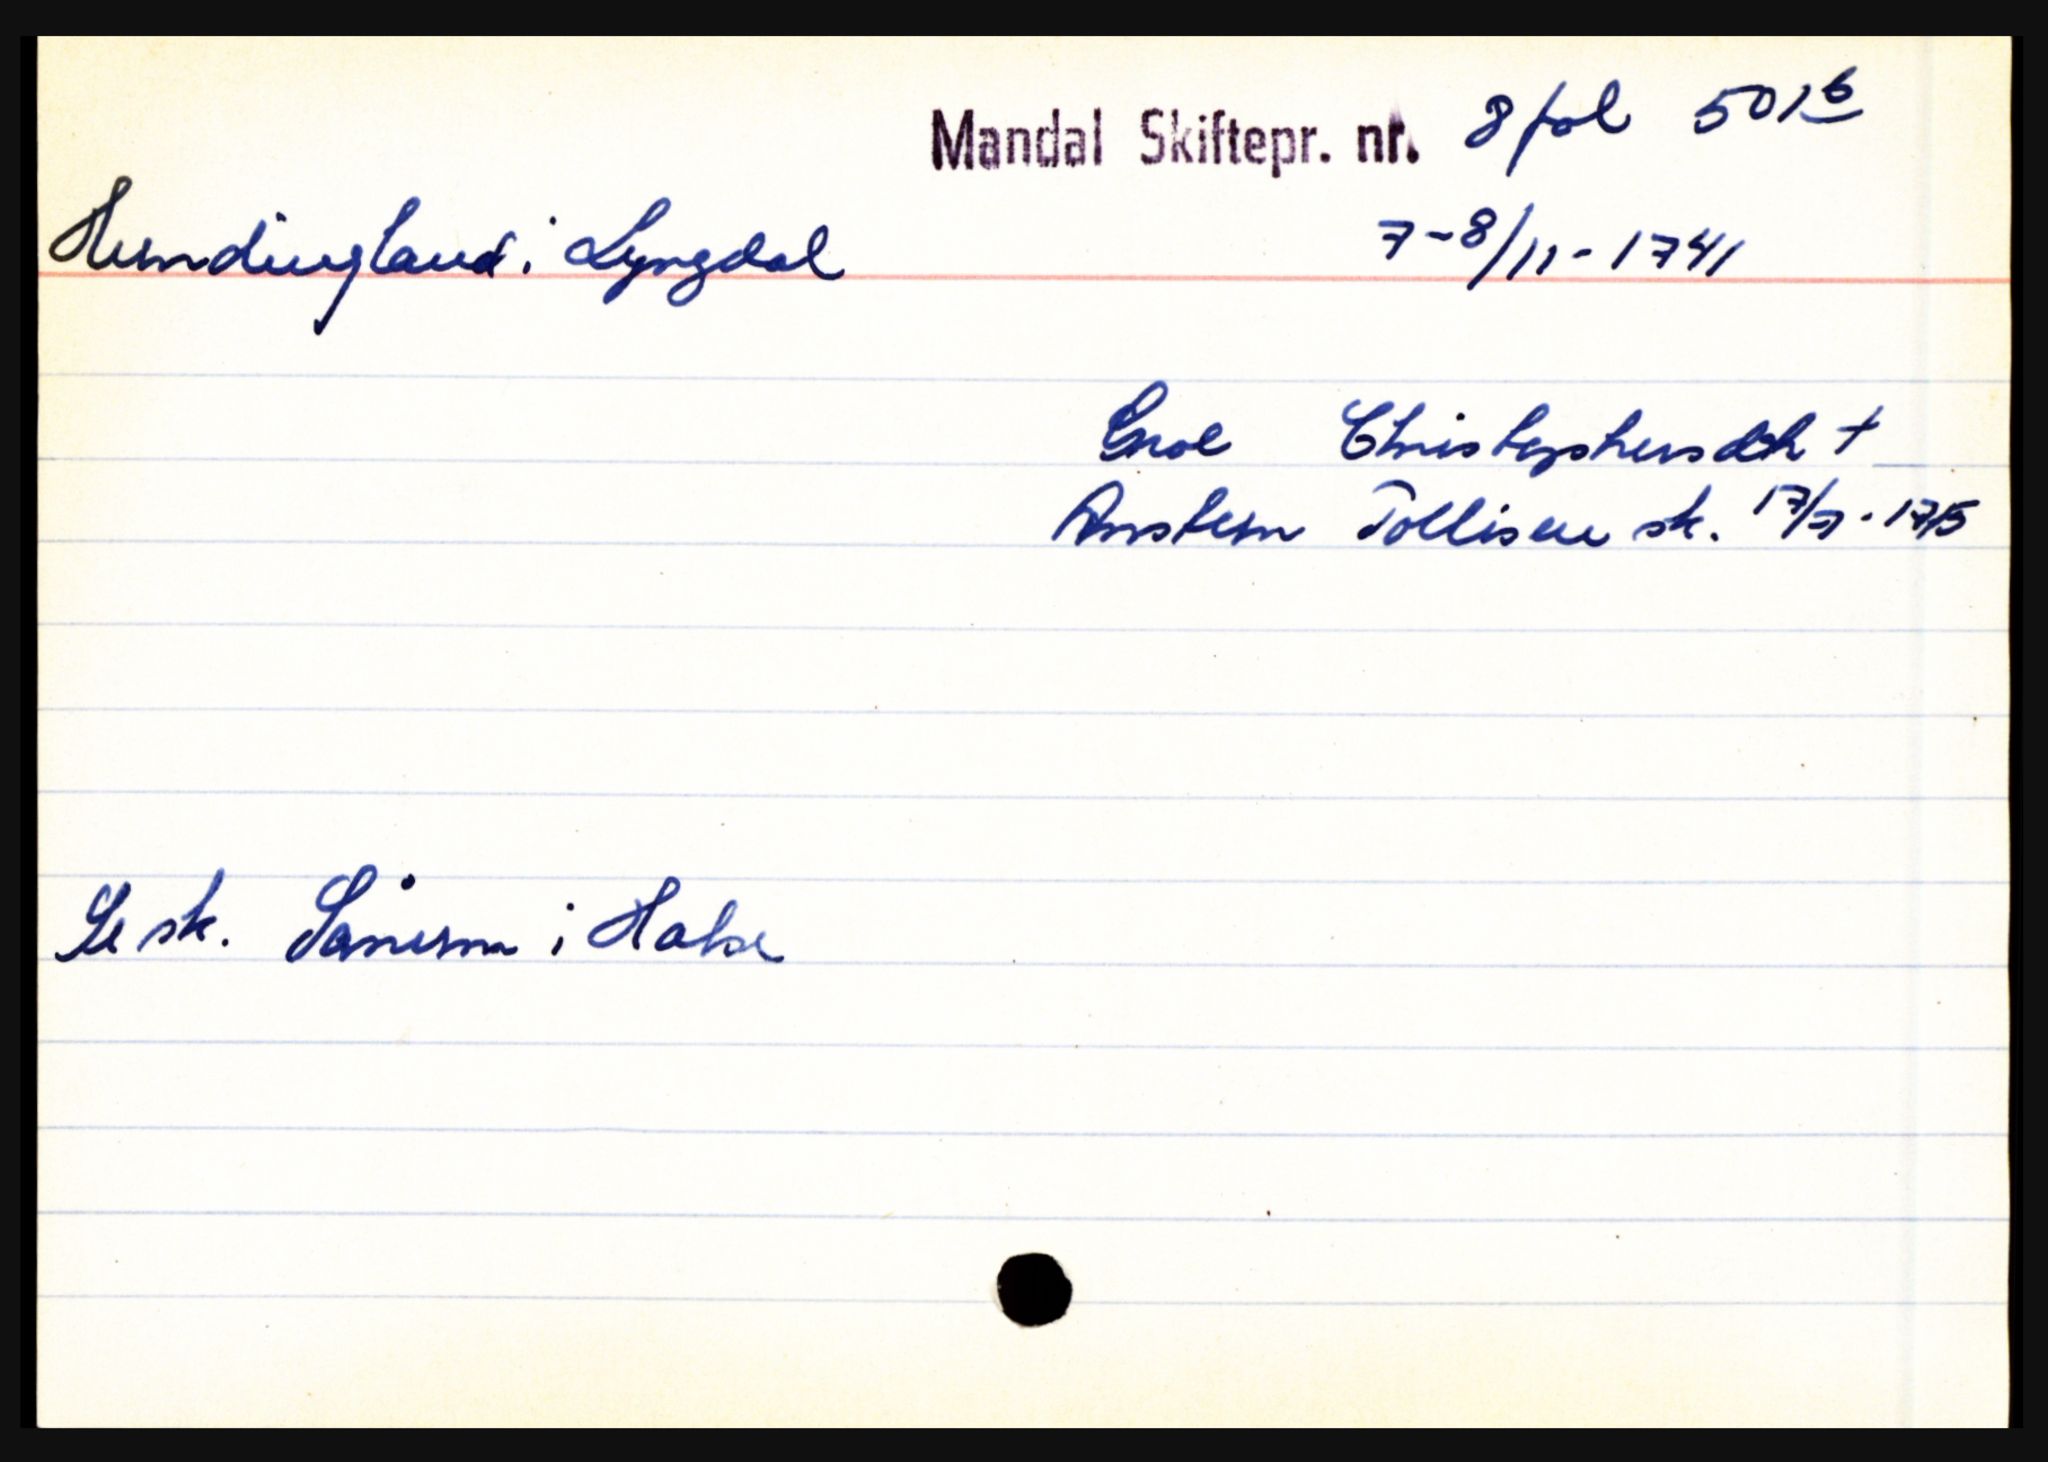 Mandal Skiftepr. nr. 8 fol 501b
Hundingland i Lyngdal 7-8/11-1741
Christophersdtr +
Tollisen sk. 17/7-1715
Se sk. Sånum i Halse